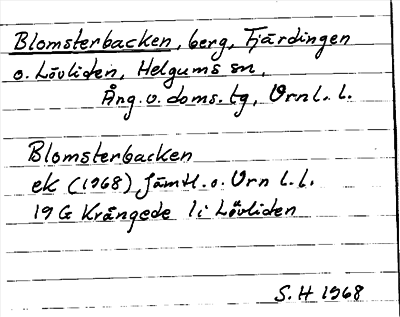 Blomsterbacken, berg, Fjärdingen
o. Lövliden, Helgums sn,
Ång. v. doms. tg, Vrnl. l.
Blomsterbacken
ek (1968) Jämtl. o. Vrn l. l.
19 G Krångede 1i Lövliden
S. H 1968